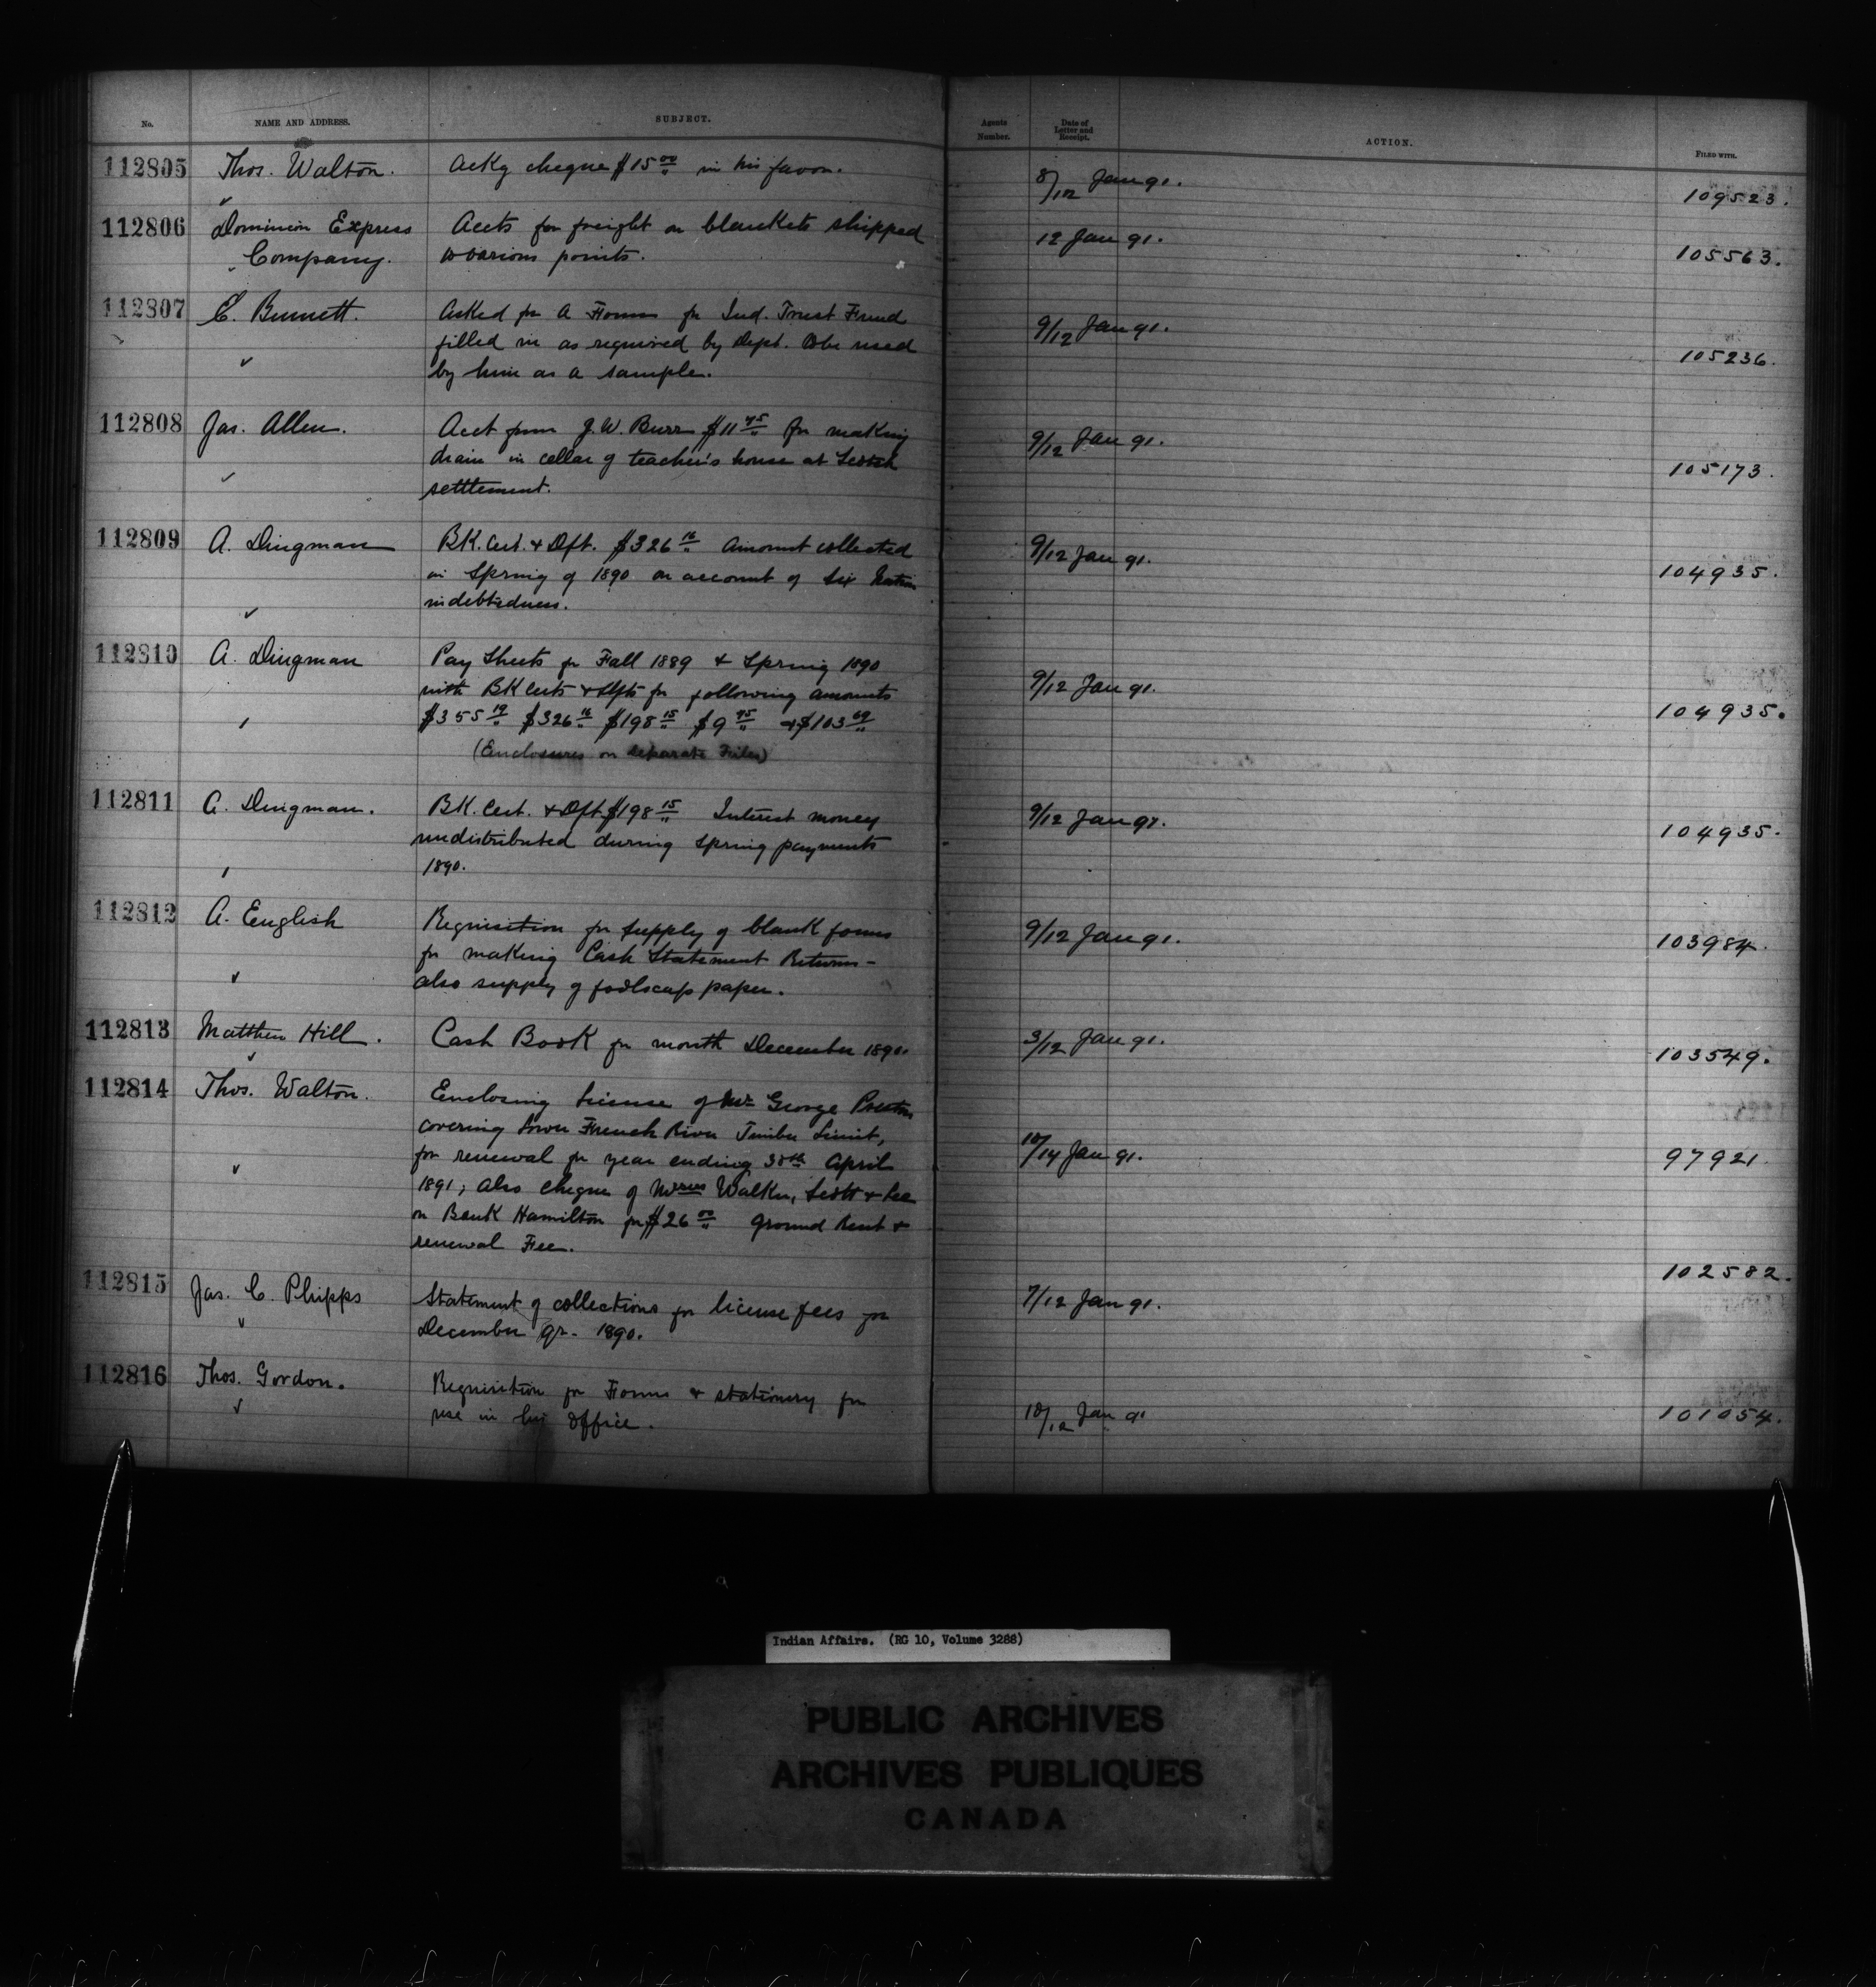 No. NAME AND ADDRESS. SUBJECT. Agents Number. Date of Letter and Receipt. ACTION. FILED WITH.
112805 Thos. Walton. Ackg cheque $15 00 in his favor. 8/12 Jan 91. 109523.
112806 Dominion Express Accts for freight on blankets shipped 12 Jan 91.
Company. to various points. 105563.
112807 C. Bunnett. Asked for A Forms for Ind. Trust Fund 9/12 Jan 91.
filled in as required by Dept. to be used 105236.
by him as a sample.
112808 Jas. Allen. Acct from J.W. Burr $11 75 for making 9/12 Jan 91.
drain in cellar of teacher's house at Scotch 105173.
settlement.
112809 A. Dingman BK. Cert. & Dft. $326 16 Amount collected 9/12 Jan 91.
in Spring of 1890 on account of Six Nation 104935.
indebtedness.
112810 A. Dingman Pay Sheets for Fall 1889 & Spring 1890
with BK Certs & Dfts for following amounts 9/12 Jan 91.
$355 19 $326 16 $198 15 $9 75 & $103 69 104935.
(Enclosures on separate Files)
112811 A. Dingman. BK. Cert. & Dft $198 15 Interest money 9/12 Jan 91.
undistributed during Spring payments 104935.
1890.
112812 A. English Requisition for supply of blank forms 9/12 Jan 91.
for making Cash Statement Returns - 103984.
also supply of foolscap paper.
112813 Matthew Hill. Cash Book for month December 1890. 3/12 Jan 91. 103549.
112814 Thos. Walton. Enclosing license of Mr George Preston
covering Lower French River Timber Limit,
for renewal for year ending 30th April 10/14 Jan 91. 97921
1891; also cheque of Messrs Walker, Scott & Lee
on Bank Hamilton for $26 00 Ground Rent &
renewal Fee.
112815 Jas. C. Phipps Statement of collections for license fees for 7/12 Jan 91. 102582.
December qr. 1890.
112816 Thos. Gordon. Requisition for Forms & stationery for
use in his office. 10/12 Jan 91 101054.
Indian Affairs. (RG 10, Volume 3288)
PUBLIC ARCHIVES
ARCHIVES PUBLIQUES
CANADA